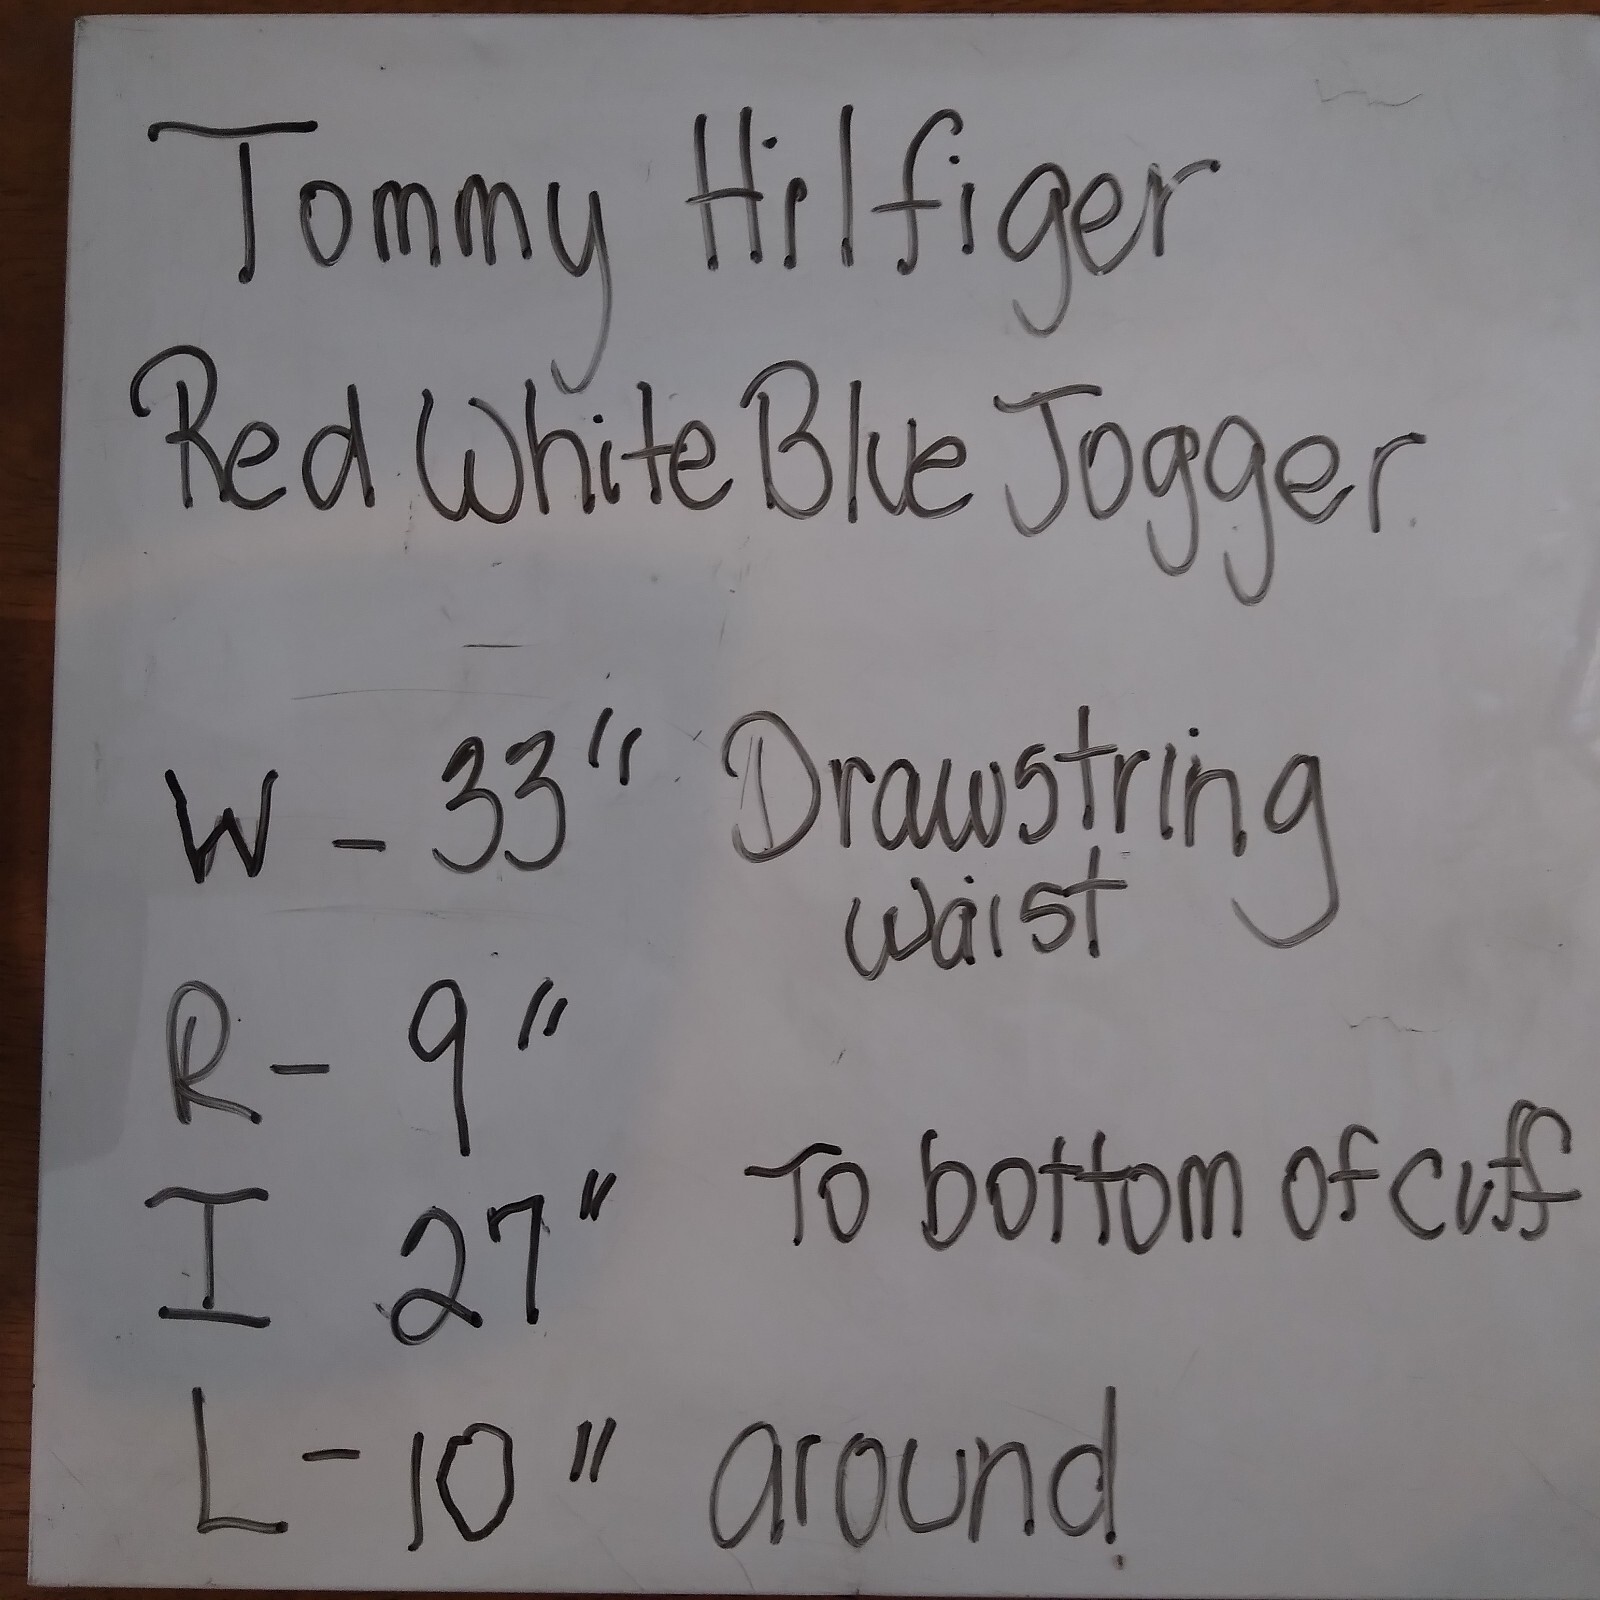 Tommy Hilfiger
Red White Blue Jogger
W - 33" Drawstring
waist
R - 9"
I 27" To bottom of cuff
L - 10" around